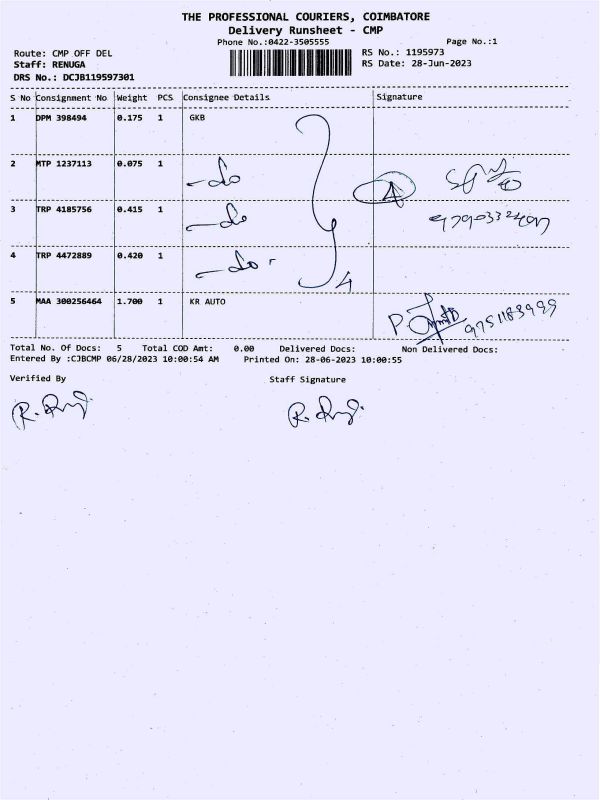 THE PROFESSIONAL COURIERS, COIMBATORE
Delivery Runsheet - CMP
Phone No.:0422-3505555 Page No.:1
Route: CMP OFF DEL RS No.: 1195973
Staff: RENUGA RS Date: 28-Jun-2023
DRS No.: DCJB119597301
S No Consignment No Weight PCS Consignee Details Signature
1 DPM 398494 0.175 1 GKB
2 MTP 1237113 0.075 1 -do 4
3 TRP 4185756 0.415 1 -do
4 TRP 4472889 0.420 1 -do- 4
5 MAA 300256464 1.700 1 KR AUTO
Total No. Of Docs: 5 Total COD Amt: 0.00 Delivered Docs: Non Delivered Docs:
Entered By :CJBCMP 06/28/2023 10:00:54 AM Printed On: 28-06-2023 10:00:55
Verified By Staff Signature